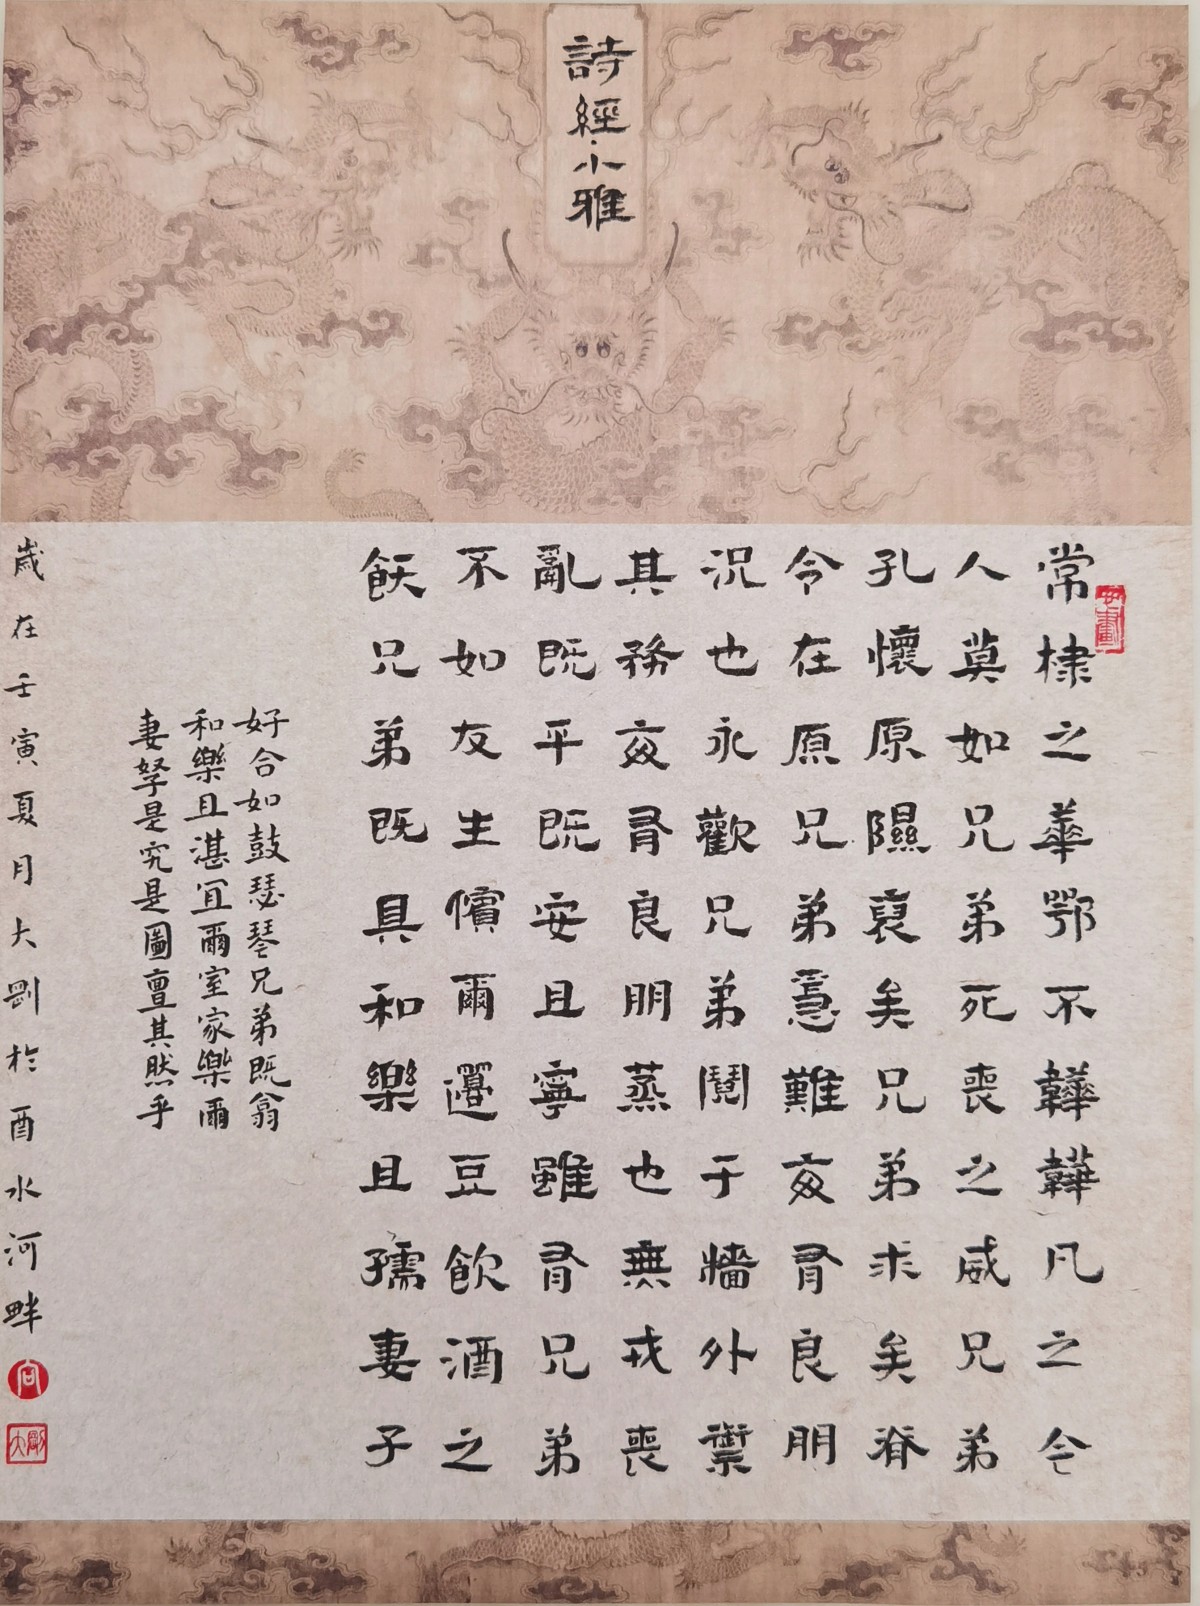 詩經·小雅
常棣之華鄂不韡韡凡之今
人莫如兄弟死喪之威兄弟
孔懷原隰裒矣兄弟求矣脊
令在原兄弟急難每有良朋
況也永歎兄弟鬩于牆外禦
其務每有良朋蒸也無戎喪
亂既平既安且寧雖有兄弟
不如友生儐爾籩豆飲酒之
飫兄弟既具和樂且孺妻子
好合如鼓瑟琴兄弟既翕
和樂且湛宜爾室家樂爾
妻孥是究是圖亶其然乎
歲在壬寅夏月大剛於酉水河畔
大剛